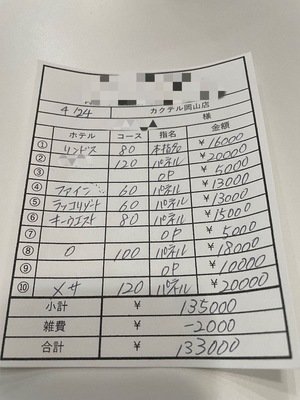 4/24 カクテル岡山店
様
ホテル コース 指名 金額
① リンドス 80 本指名 ¥16000
② 120 パネル ¥20000
③ OP ¥5000
④ ファイン 60 パネル ¥13000
⑤ ラッコリゾート 60 パネル ¥13000
⑥ キーウエスト 80 パネル ¥15000
⑦ OP ¥5000
⑧ O 100 パネル ¥18000
⑨ OP ¥10000
⑩ メサ 120 パネル ¥20000
小計 ¥ 135000
雑費 ¥ -2000
合計 ¥ 133000